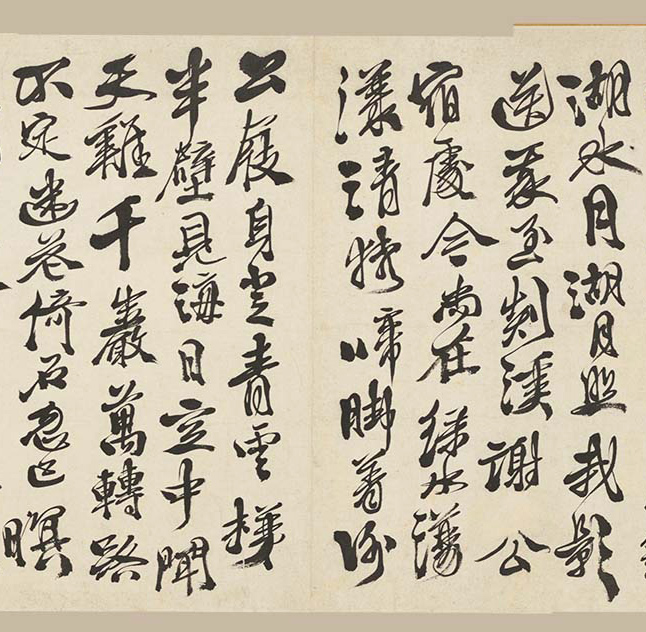 湖水月湖月照我影
送我至剡溪謝公
宿處今尚在綠水蕩
漾清猿啼脚著謝
公屐身登青雲梯
半壁見海日空中聞
天雞千巖萬轉路
不定迷花倚石忽已暝